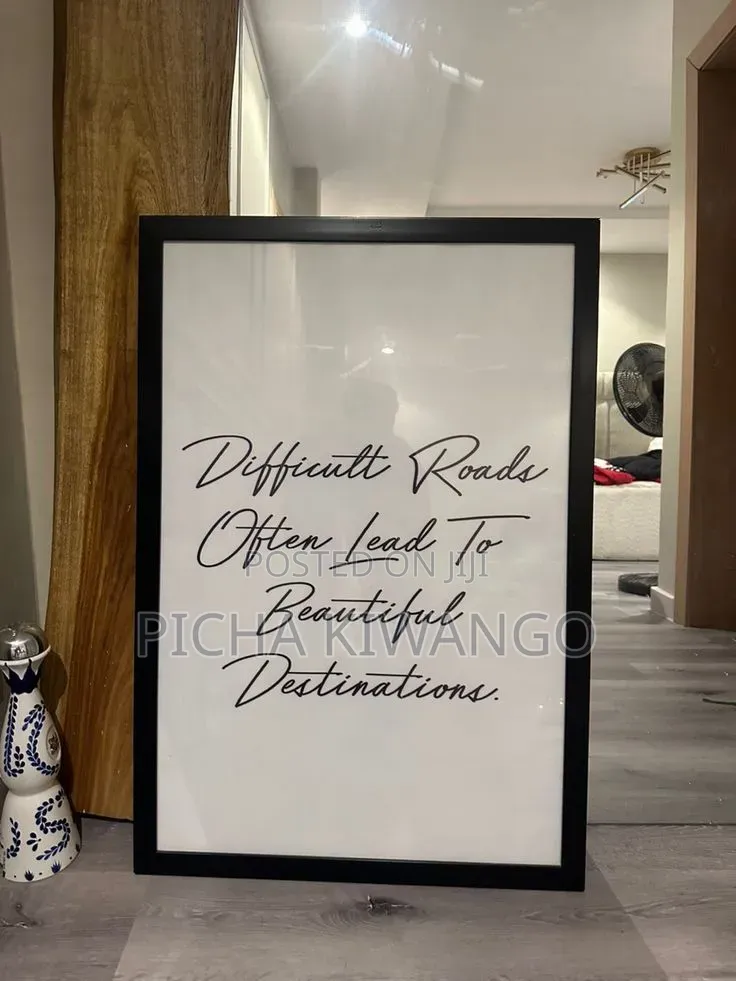 Difficult Roads
Often Lead To
POSTED ON JIJI
Beautiful
PICHA KIWANGO
Destinations.